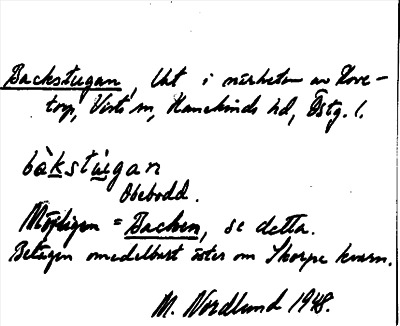 Backstugan, Uht i närheten av Hove-
torp, Vists sn, Hanekinds hd, Östg. l.
bàkstu̇gan
Obebodd.
Möjligen = Backen, se detta.
Belägen omedelbart öster om Skorpe kvarn.
M. Nordlund 1948.